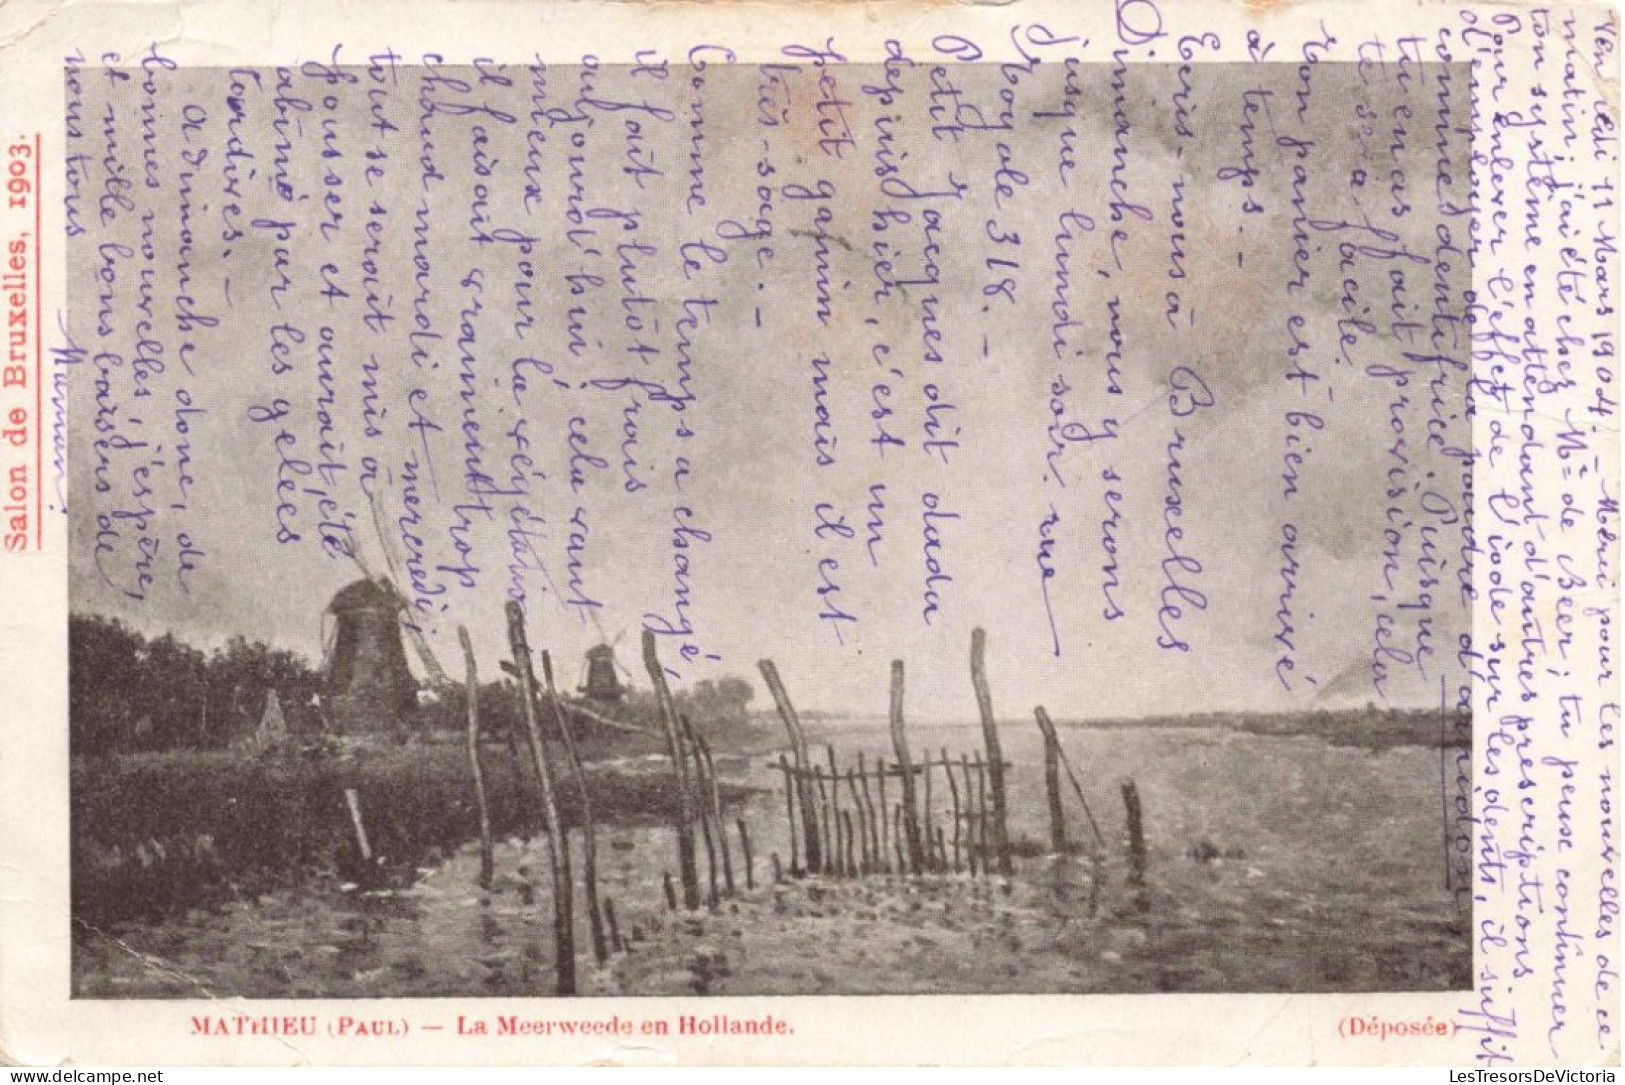 Vendredi 11 Mars 1904. – Merci pour les nouvelles de ce
matin; j'ai été chez Mme de Beer; tu peux continuer
ton système en attendant d'autres prescriptions.
Pour enlever l'effet de l'iode sur les dents, il suffit
d'employer de la poudre d'amidon
comme dentifrice. Puisque
tu en as fait provision, cela
te sera facile.
Ton panier est bien arrivé
à temps. –
Ecris-nous à Bruxelles
Dimanche, nous y serons
jusque lundi soir. rue
Royale 318. –
Petit Jacques dit dada
depuis hier, c'est un
petit gamin mais il est
très-sage. –
Comme le temps a changé,
il fait plutôt frais
aujourd'hui; cela vaut
mieux pour la végétation
il faisait vraiment trop
chaud mardi et mercredi;
tout se serait mis à
pousser et aurait été
abîmé par les gelées
tardives. –
A dimanche donc, de
bonnes nouvelles, j'espère,
et mille bons baisers de
nous tous
Maman.
Salon de Bruxelles, 1903.
MATHIEU (PAUL) — La Meerweede en Hollande.
(Déposée)
LesTresorsDeVictoria